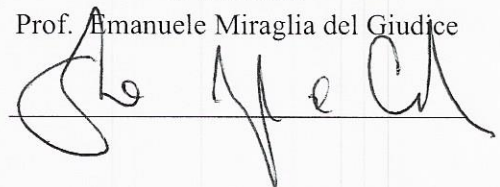 Prof. Emanuele Miraglia del Giudice